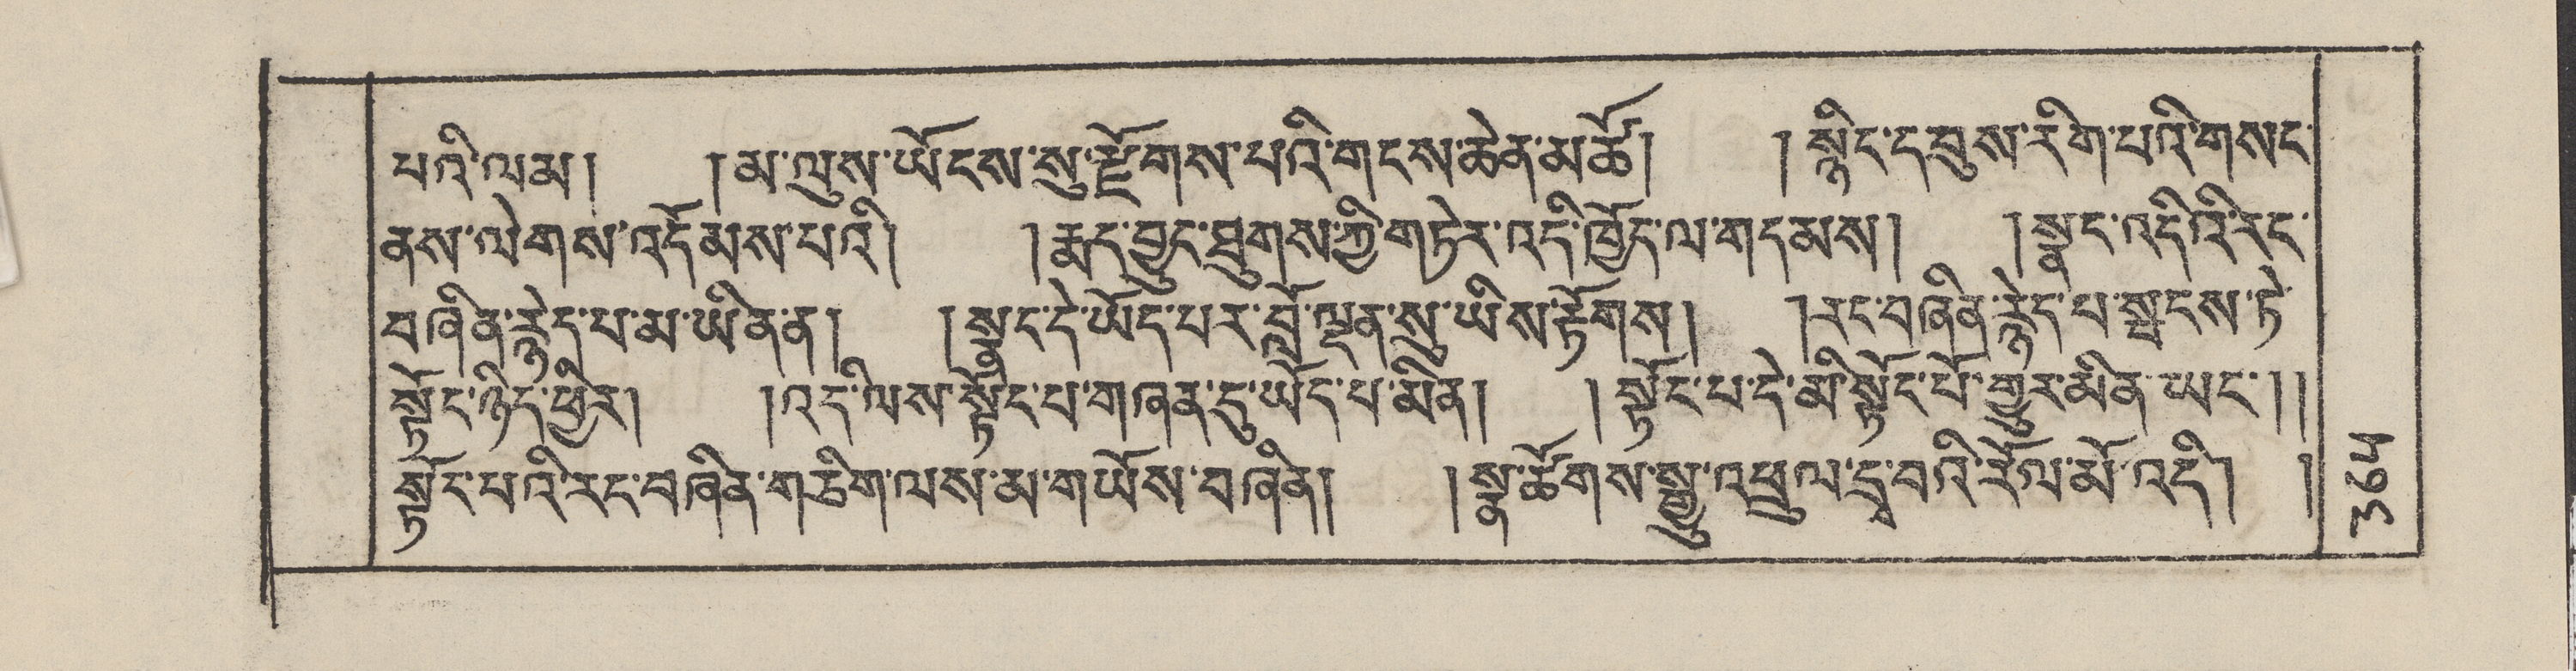 པའི་ལམ། །མ་ལུས་ཡོངས་སུ་རྫོགས་པའི་གངས་ཆེན་མཚོ། །སྙིང་དབུས་རིག་པའི་གསང་
ནས་ལེགས་འདོམས་པའི། །རྨད་བྱུང་ཐུགས་ཀྱི་གཏེར་འདི་ཁྱོད་ལ་གདམས། །སྣང་འདིའི་རང་
བཞིན་རྙེད་པ་མ་ཡིནན། །སྣང་དེ་ཡོད་པར་བློ་ལྡན་སུ་ཡིས་རྟོགས། །རང་བཞིན་རྙེད་པ་སྤངས་ཏེ་
སྟོང་ཉིད་ཕྱིར། །འད་ལིས་སྟོང་པ་གཞན་དུ་ཡོད་པ་མིན། །སྟོང་པ་དེ་མི་སྟོང་པོ་གྱུར་མིན་ཡང་།།
སྟོང་པའི་རང་བཞིན་གཅིག་ལས་མ་གཡོས་བཞིན། །སྣ་ཚོགས་སྒྱུ་འཕྲུལ་དྲྭ་བའི་རོལ་མོ་འདི། །